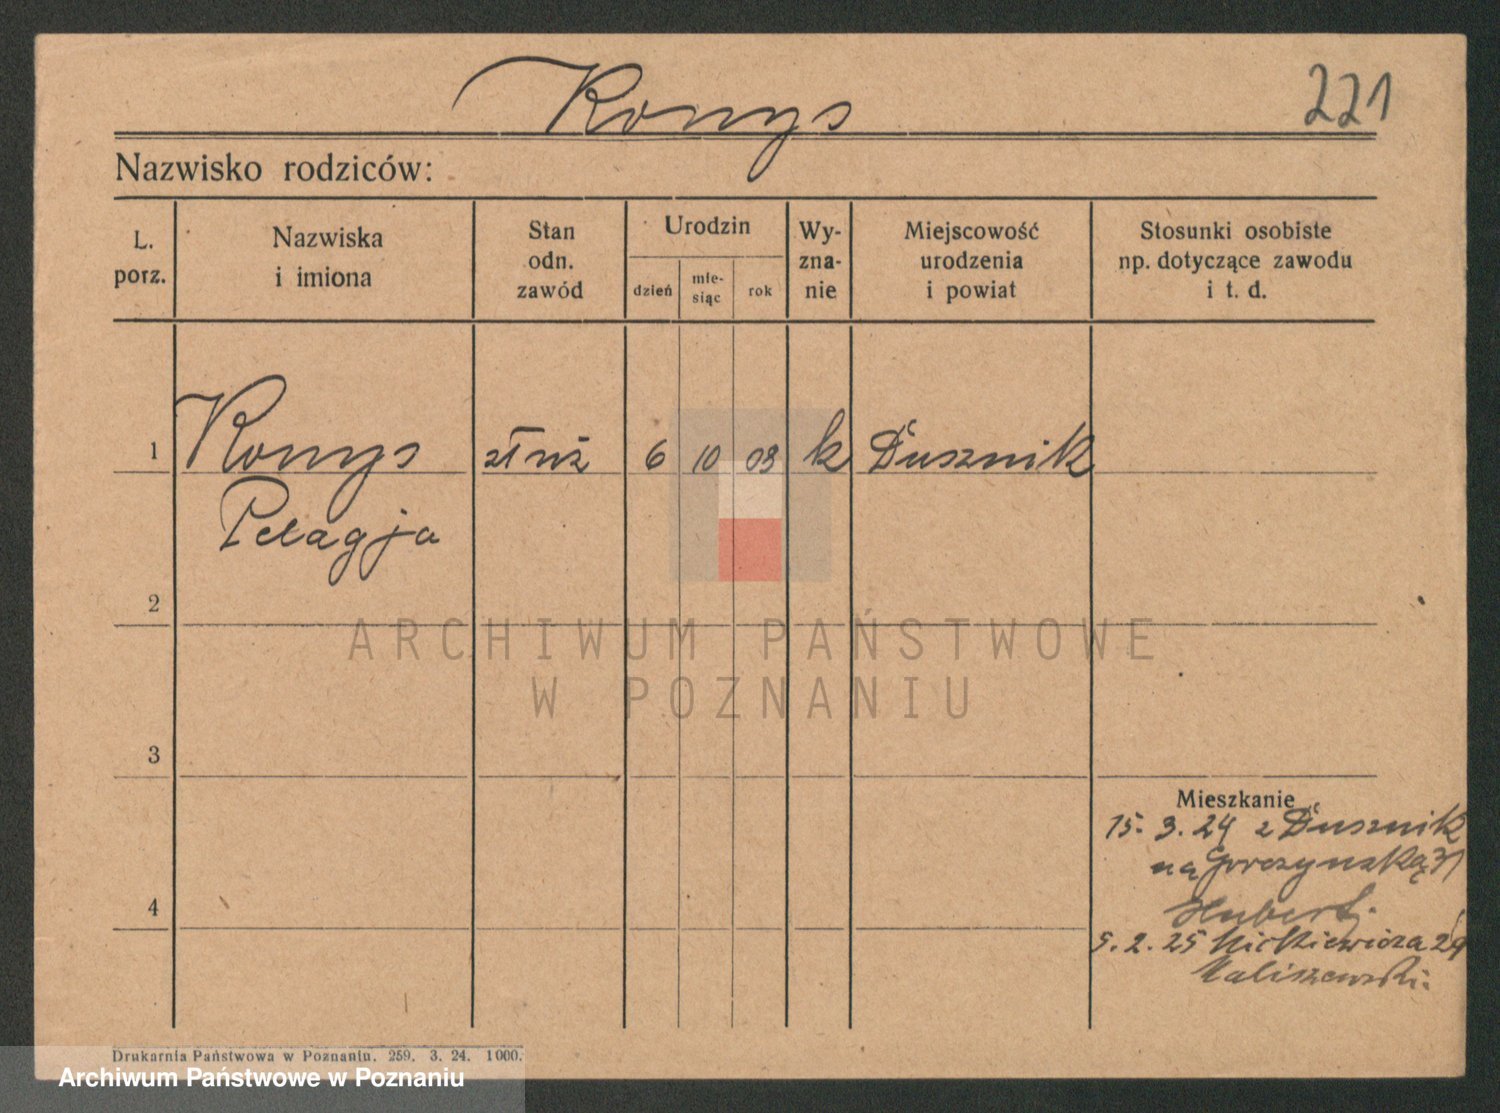 Konys
221
Nazwisko rodziców:
L. porz.
Nazwiska i imiona
Stan odn. zawód
Urodzin
dzień
mie- siąc
rok
Wy- zna- nie
Miejscowość urodzenia i powiat
Stosunki osobiste np. dotyczące zawodu i t. d.
1 Konys służ 6 10 03 k Dusznik
Pelagja
2
3
4
Mieszkanie
15. 3. 24 z Dusznik
na Gorczyńską 31
Hubert.
5. 2. 25 Mickiewicza 29
Kaliszewski.
ARCHIWUM PAŃSTWOWE
W POZNANIU
Drukarnia Państwowa w Poznaniu. 259. 3. 24. 1000.
Archiwum Państwowe w Poznaniu